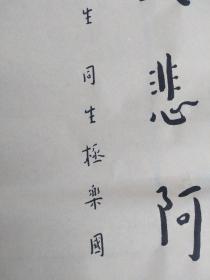 悲阿
生同生極楽國